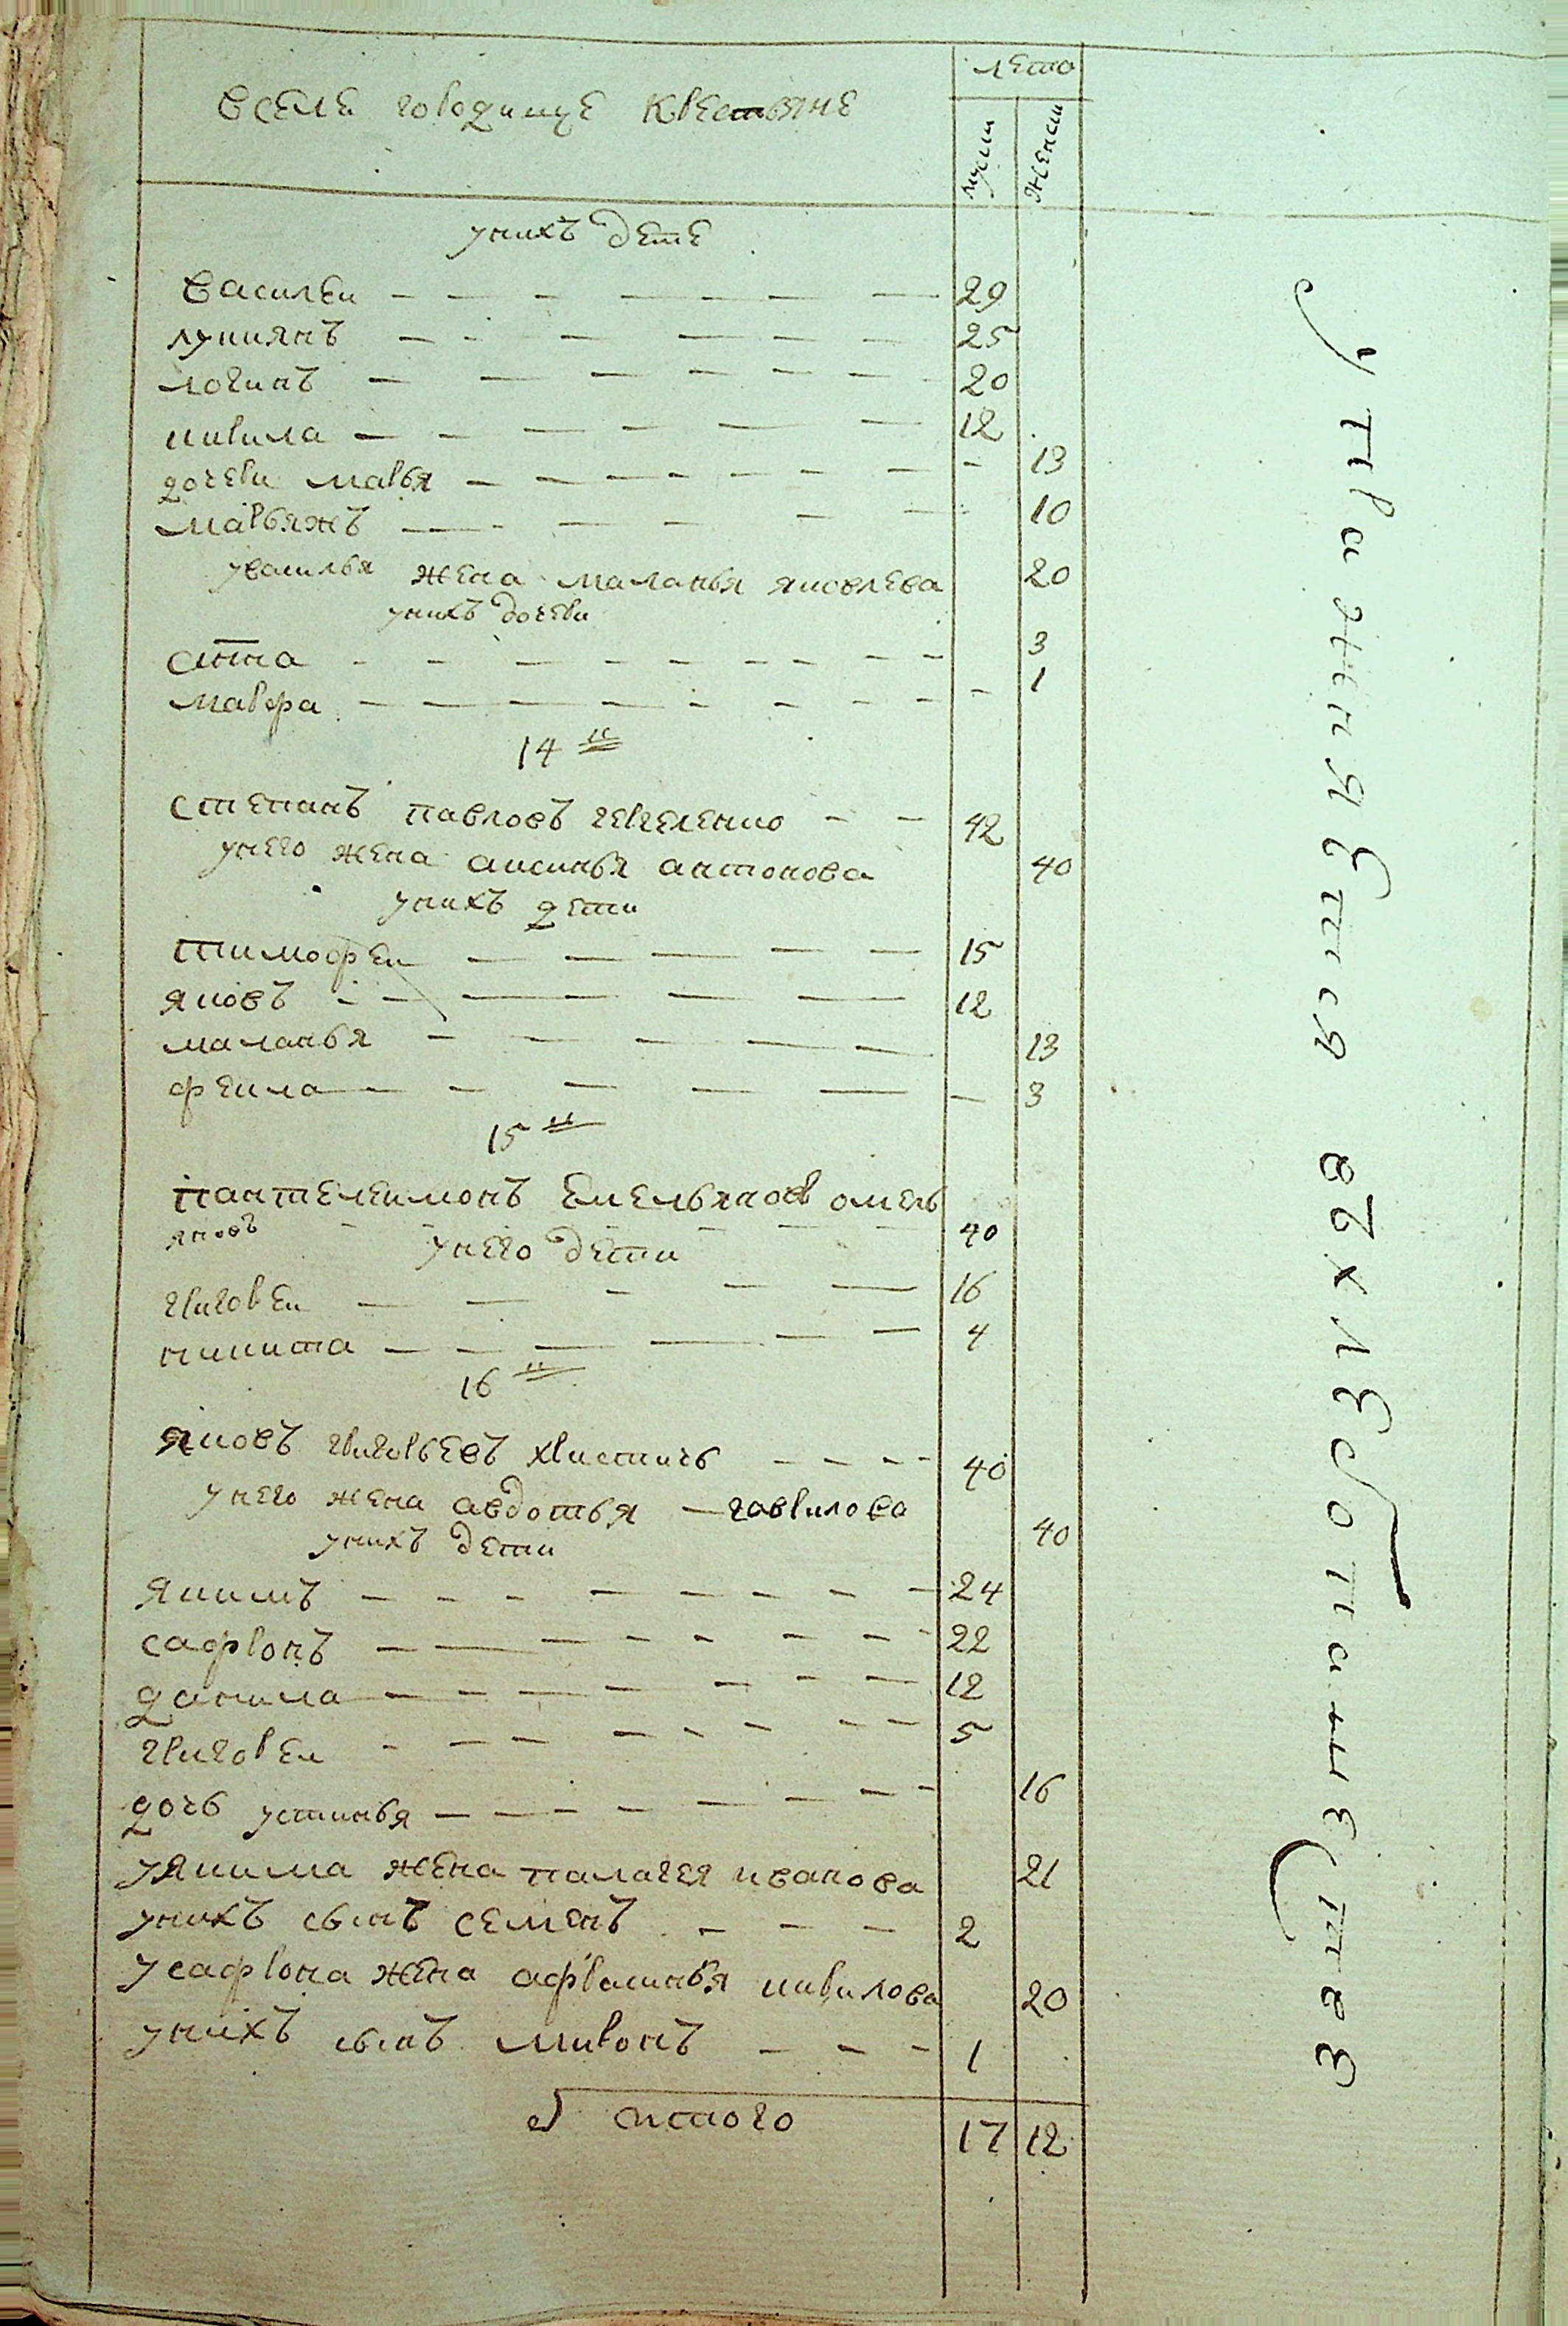 лета
вселе городище крестьяне
муш
женск
унихъ дете
василеи — 29
лукиянъ — 25
логинъ — 20
кирила — 12
дочери марья — 13
марья жъ — 10
увасилья жена маланья яковлева 20
унихъ дочери
анна — 3
мавра — 1
14 и
степанъ павловъ — 42
унего жена аксинья антонова 40
унихъ дети
тимофеи — 15
яковъ — 12
маланья — 13
фекла — 3
15 и
пантелеимонъ емельяновъ омель
яновъ — 40
унего дети
григореи — 16
никита — 4
16 и
яковъ григорьевъ — 40
унего жена авдотья — гаврилова 40
унихъ дети
якимъ — 24
сафронъ — 22
данила — 12
григореи — 5
дочь устинья — 16
уякима жена палагея иванова 21
унихъ сынъ семенъ — 2
усафрона жена афросинья кирилова 20
унихъ сынъ миронъ — 1
итого 17 12